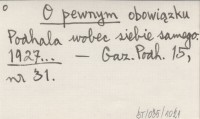 O pewnym obowiązku
Podhala wobec siebie samego.
1927... — Gaz. Podh. 15,
nr 31.